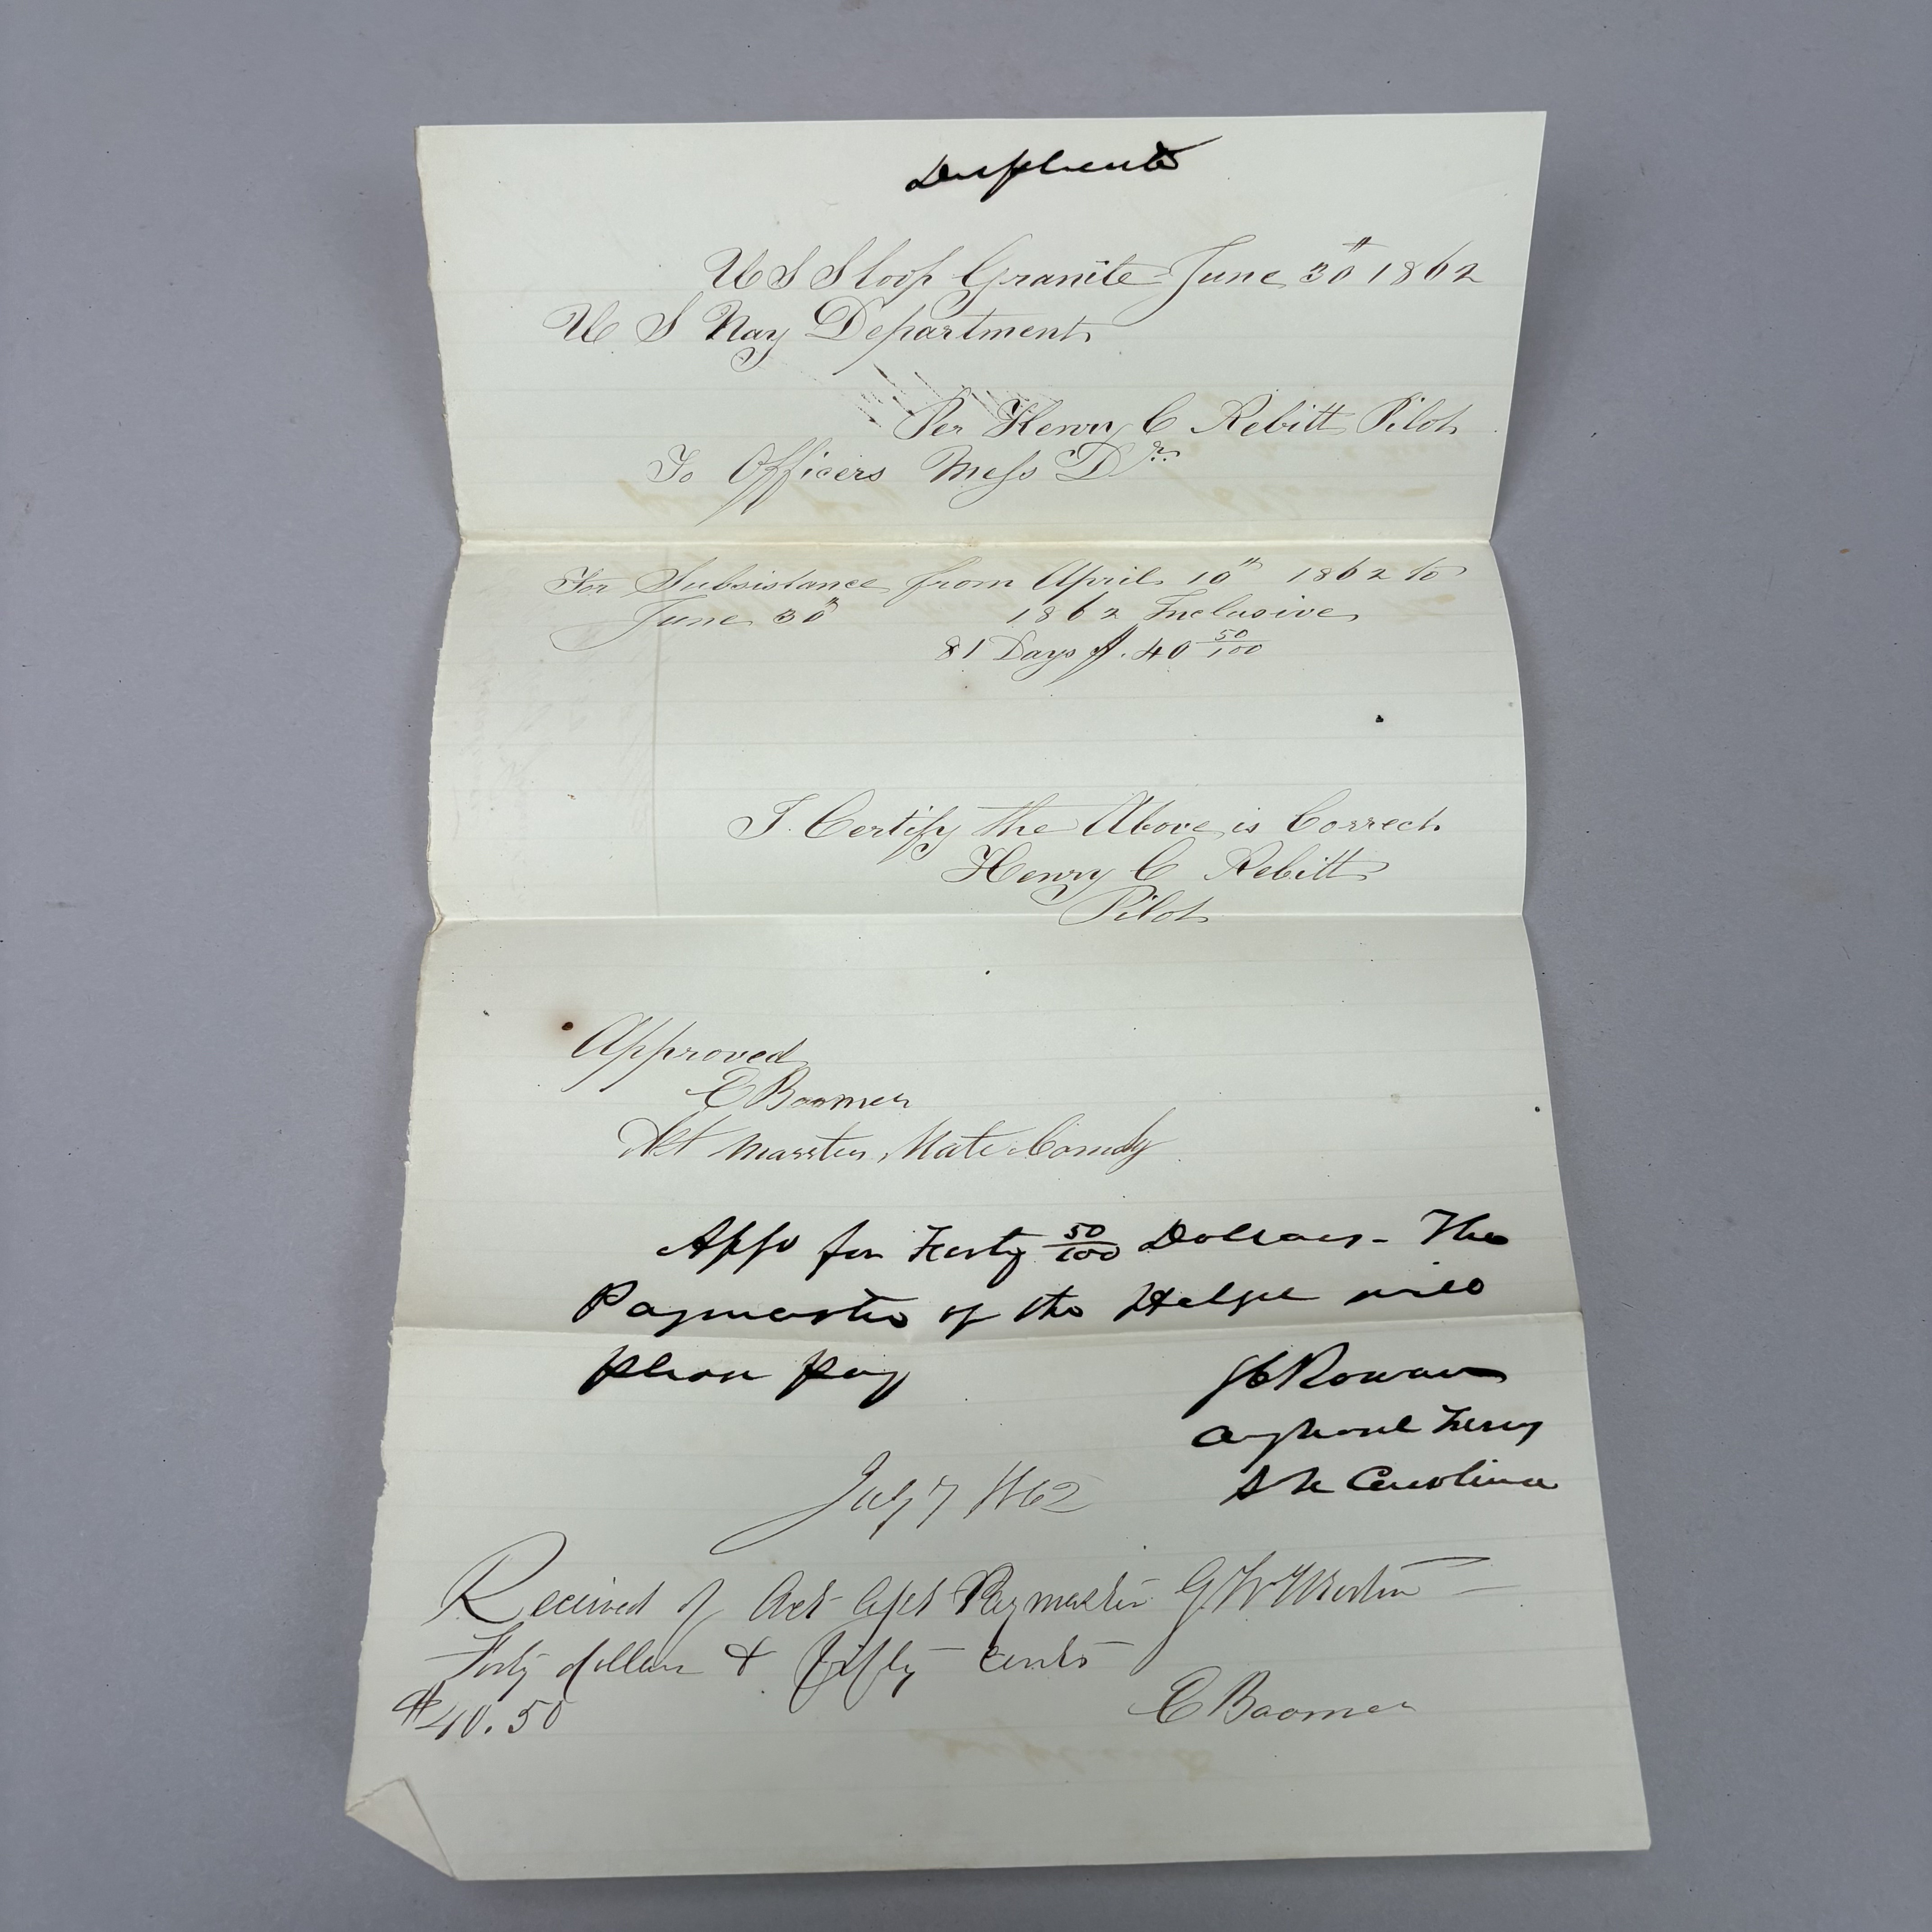 Duplicate
U S Sloop Granite June 30th 1862
U S Navy Department
Per Henry C Rebitt Pilot
To Officers Mess Dr
For Subsistance from April 10th 1862 to
June 30th 1862 Inclusive
81 Days $. 40 50/100
I. Certify the Above is Correct
Henry C Rebitt
Pilot
Approved
E Boomer
Act Masster, Mate Comdg
Appd for Forty 50/100 Dollars - The
Paymaster of the Hetzel will
please pay
S C Rowan
Sr N Carolina
July 7 1862
Received of Act Asst Paymaster G W Morton
Forty dollars & fifty cents
$40.50
E Boomer